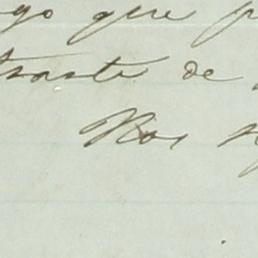 go que p
traste de
Nos